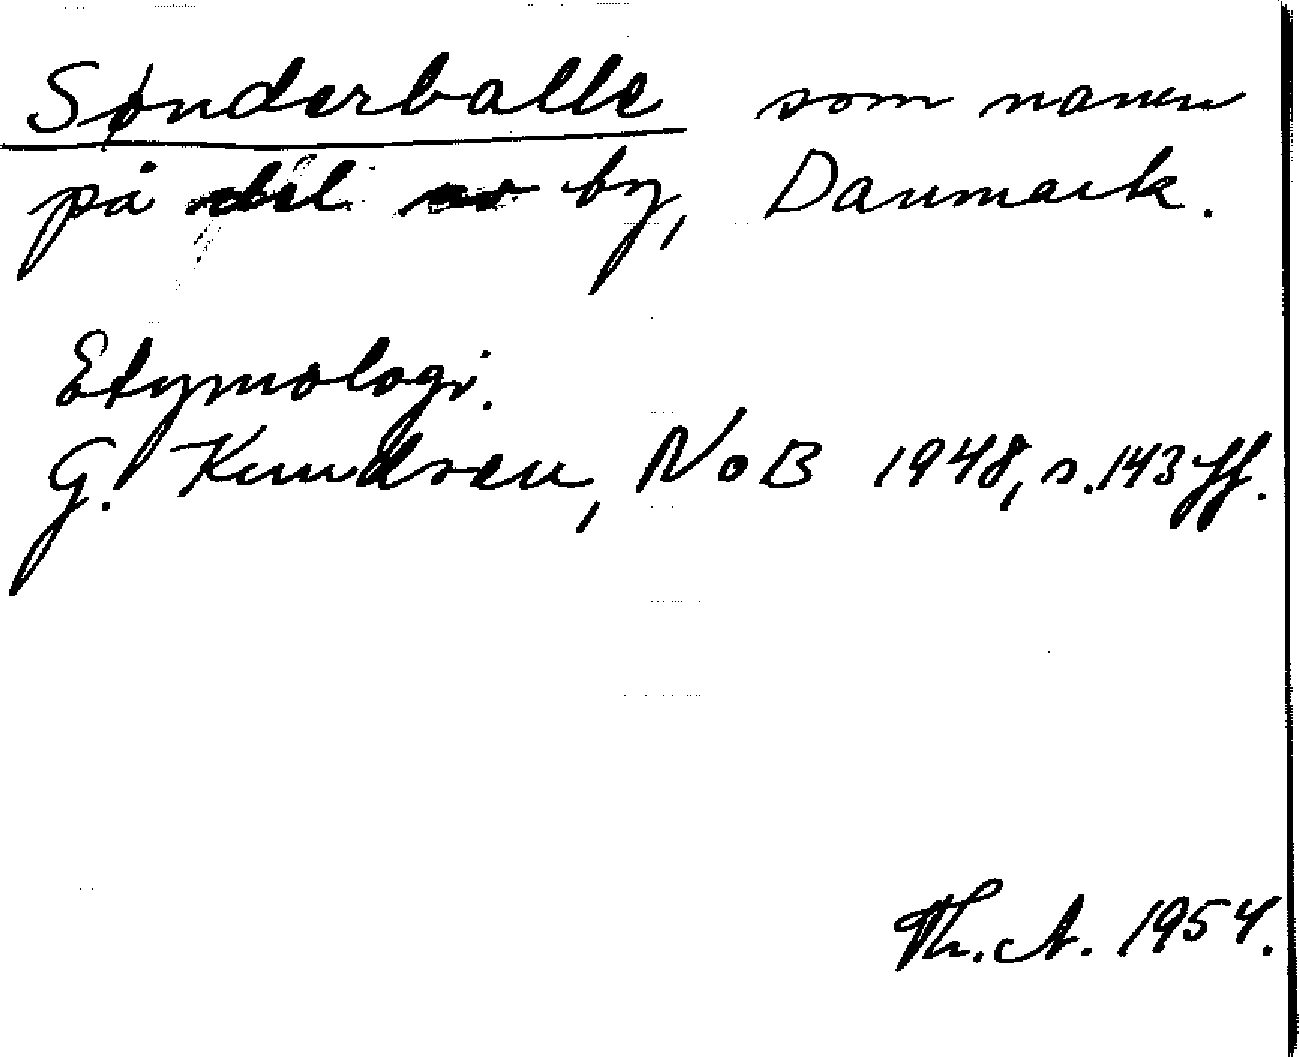 Sønderballe som namn
på del av by, Danmark.
Etymologi.
G. Knudsen, NoB 1948, s. 143 ff.
Th. A. 1954.